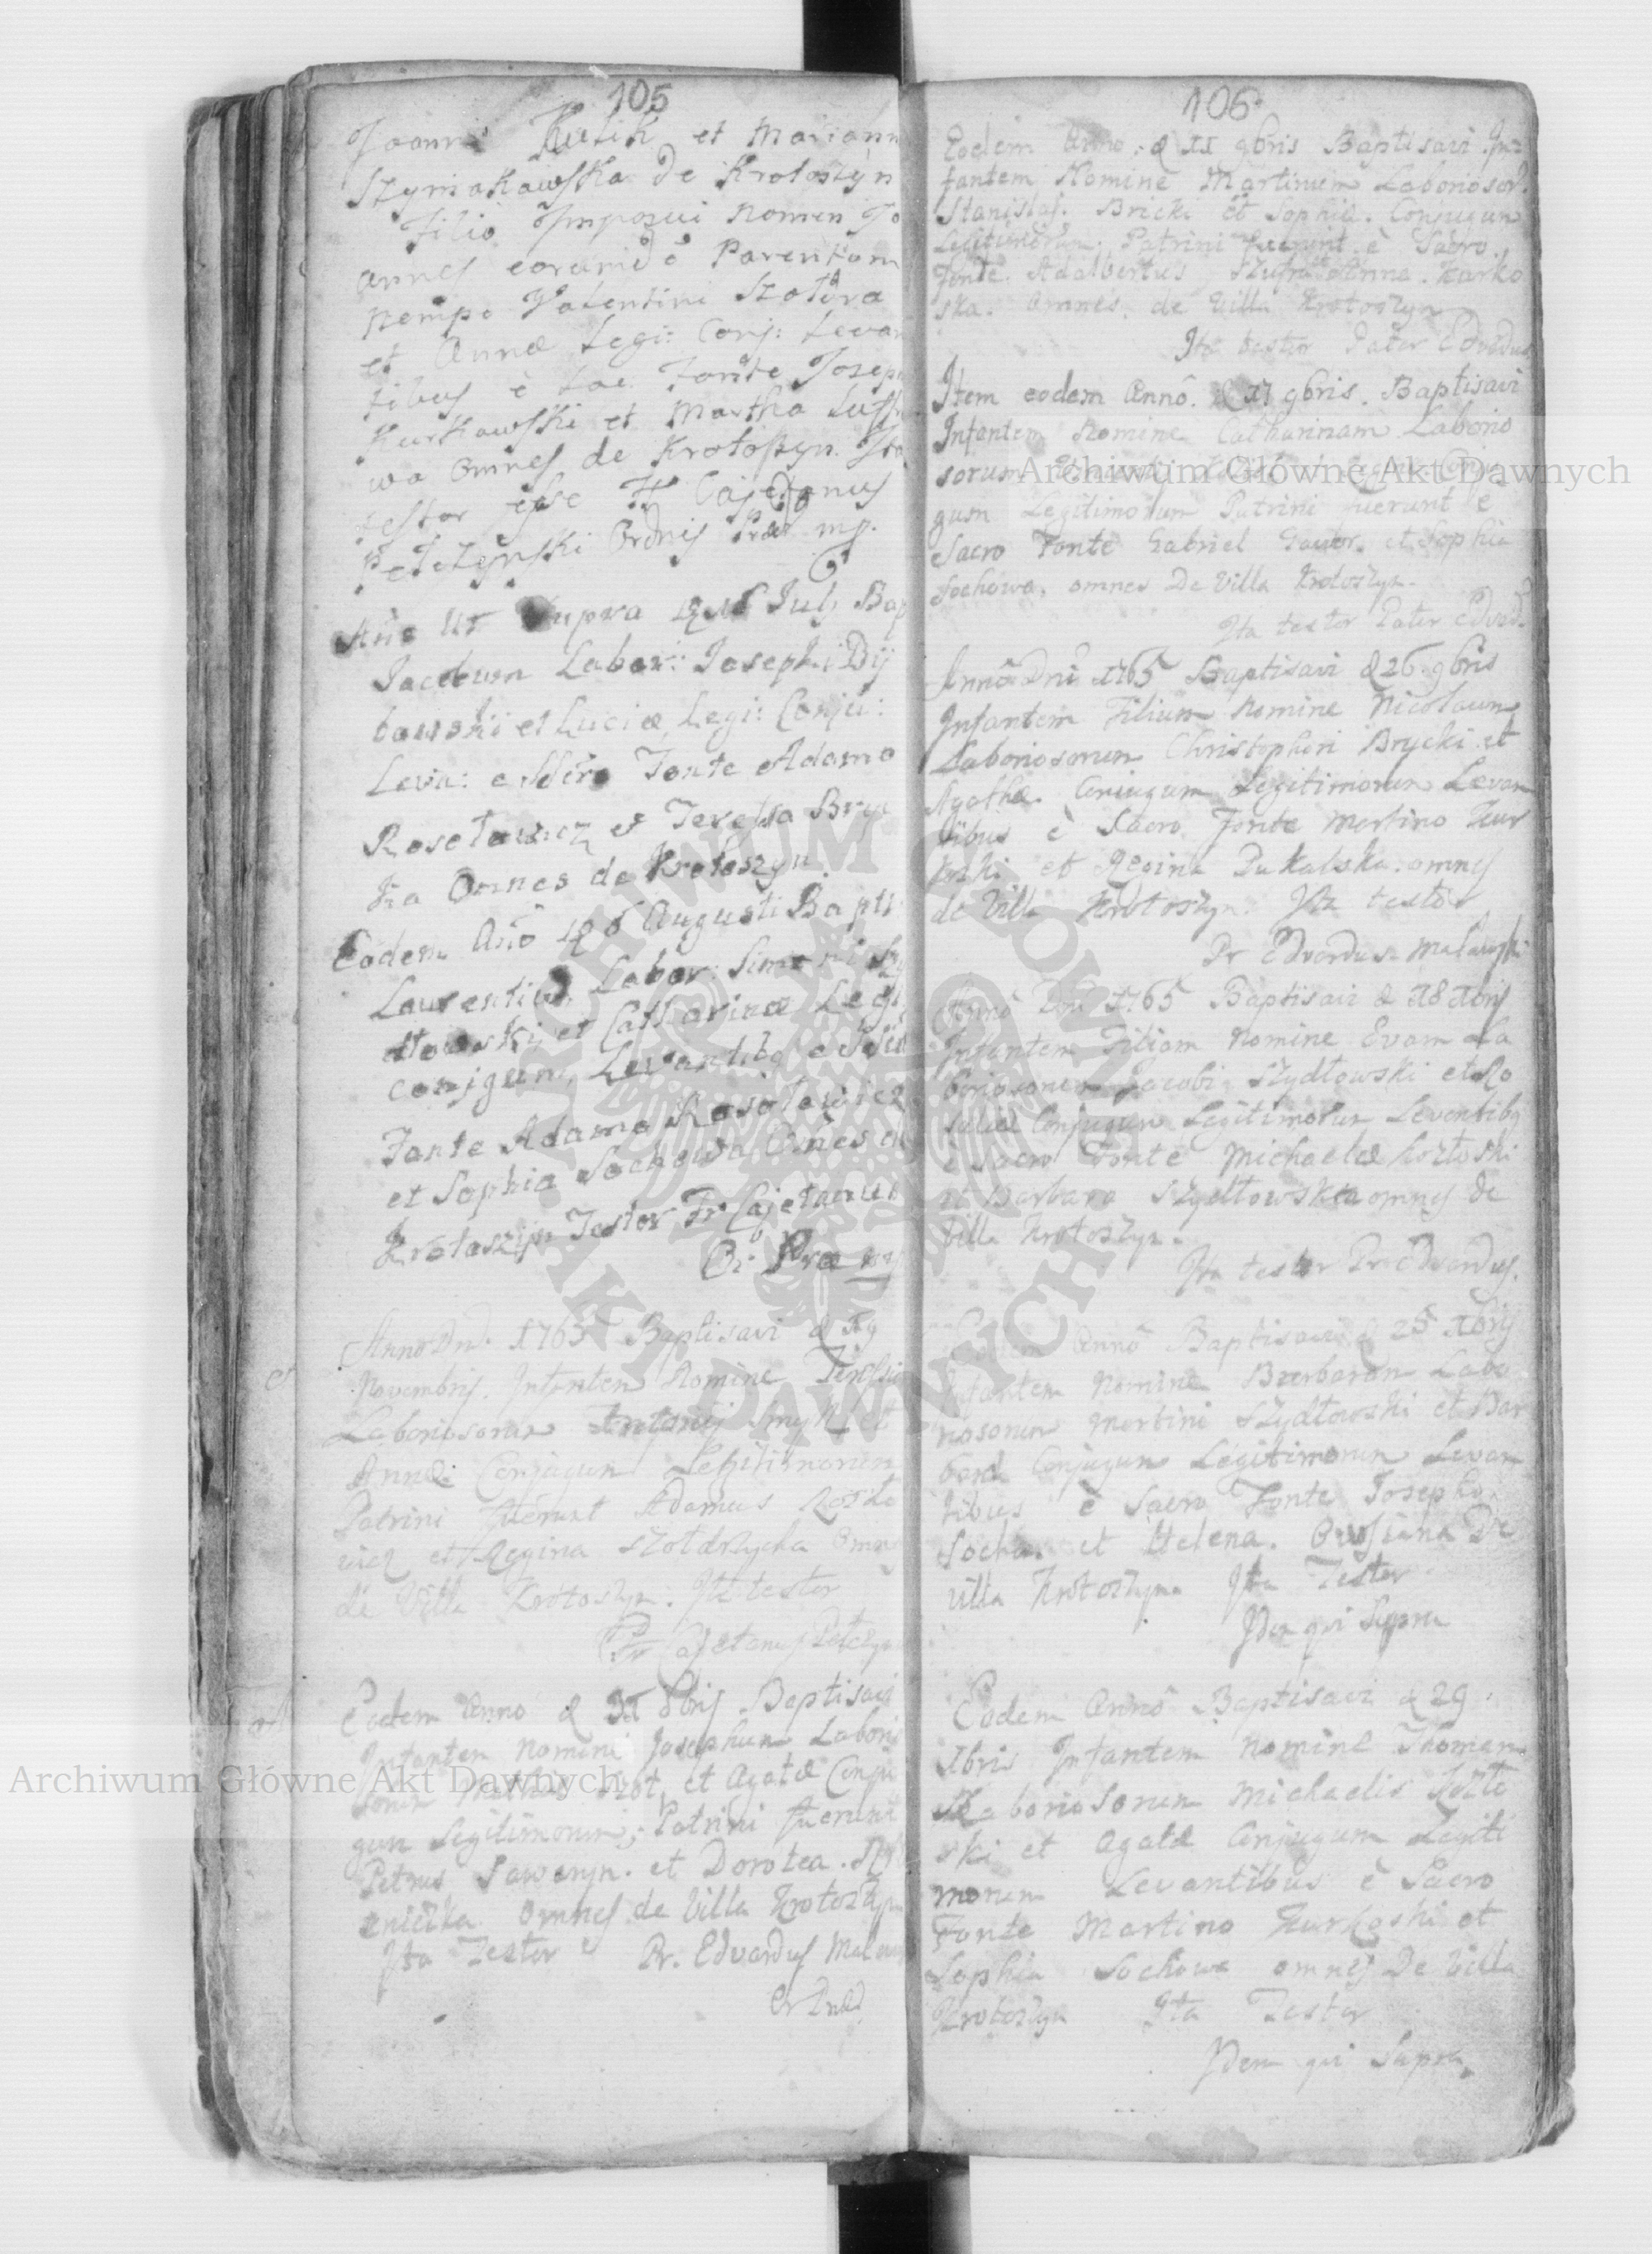 105
Joanni Kulik et Mariann
Szymakawska de Krotoszyn
Filio Imposui nomen Jo
annes eorumdē Parentum
nempe Valentini Szotdra
et Annæ Legi: Conj: Levan
tibus è Sac Fonte Joseph
Kurkowski et Martha
wa Omnes de Krotoszyn. Ita
testor ipse Fr Cajetanus
Petczynski Ordnis Præd mp.
Año Ut Supra 18 Julij Bap
Jacobum Labor: Josephi Dy
bowskii et Luciæ Legi: Conju:
Leva: e Sacro Fonte Adamo
Rosolowicz et Teressa Bryc
ka Omnes de Krotoszyn
Eodem Año 6 Augusti Bapti
Laurentium Labor: Simonis Szy
dtowskij et Catharinæ Legi
conjgum Levantibq e
Fonte Adamo Rosolowicz
et Sophia Sochowa Omes d
Krotoszyn Testor Fr Cajetanus
Or Præ mp
Anno Dni 1765 Baptisavi d 19
Novembris. Infantem Nomine
Laboriosorum Antonij Smyk et
Annæ Conjugum Legitimorum
Patrini fuerunt Adamus Rosolo
wicz et Regina Szotdrzycka Omnes
de Villa Krotoszyn. Ita testor
Fr Cajetanus Petczyn
Eodem Anno d 31 8bris Baptisavi
Infantem nomine Josephum Laborio
sorum Mathiæ Szot, et Agatæ Conju
gum Legitimorum; Patrini fuerunt
Petrus Saweryn. et Dorotea.
enicka omnes de Villa Krotoszyn
Ita Testor Pr. Edvardus Malaws
Or Præd
106
Eodem Anno d 11 9bris Baptisavi In
fantem Nomine Martinum Laboriosor.
Stanislai. Bricki et Sophiæ. Conjugum
Legitimorum. Patrini fuerunt è Sacro.
Fonte. Adalbertus et Anna. Karko
ska. omnes. de Villa Krotoszyn
Ita testor Pater Edvardus
Item eodem Annô. d 11 9bris. Baptisavi
Infantem Nomine Catharinam Laborio
sorum
gum Legitimorum Patrini fuerunt è
Sacro Fonte Gabriel et Sophia
Sochowa. omnes De Villa Krotoszyn.
Ita testor Pater Edvard.
Annô Dni 1765 Baptisavi d 26. 9bris
Infantem Filium Nomine Nicolaum
Laboriosorum Christophori Brycki et
Agathæ. Conjugum Legitimorum Levan
tibus è Sacro Fonte Martino Kur
koski et Regina Pukalska. omnes
de Villa Krotoszyn. Ita testor
Pr Edvardus Malawski
Annô Dni 1765 Baptisavi d 18 Xbris
Infantem Filiam Nomine Evam La
boriosorum Jacobi Szydtowski et Ro
saliæ Conjugum Legitimorum Levantibq
è Sacro Fonte Michaele Koztoski
et Barbara Szydtowska omnes de
Villa Krotoszyn.
Ita testor Pr Edvardus.
Eodem Annô Baptisavi d 25 Xbris
Infantem nomine Barbaram Labo
riosorum Martini Szydtowski et Bar
baræ Conjugum Legitimorum Levan
tibus è Sacro Fonte Josepho
Socha. et Helena. De
villa Krotoszyn. Ita Testor
Idem qui Supra
Eodem Annô Baptisavi d 29.
Xbris Infantem nomine Thomam
Laboriosorum Michaelis Kozto
ski et Agatæ Conjugum Legiti
morum Levantibus è Sacro
Fonte Martino Kurkoski et
Sophia Sochowa omnes De Villa
Krotoszyn Ita Testor
Idem qui Supra.
Archiwum Główne Akt Dawnych
Archiwum Główne Akt Dawnych
ARCHIWUM GŁÓWNE AKT DAWNYCH